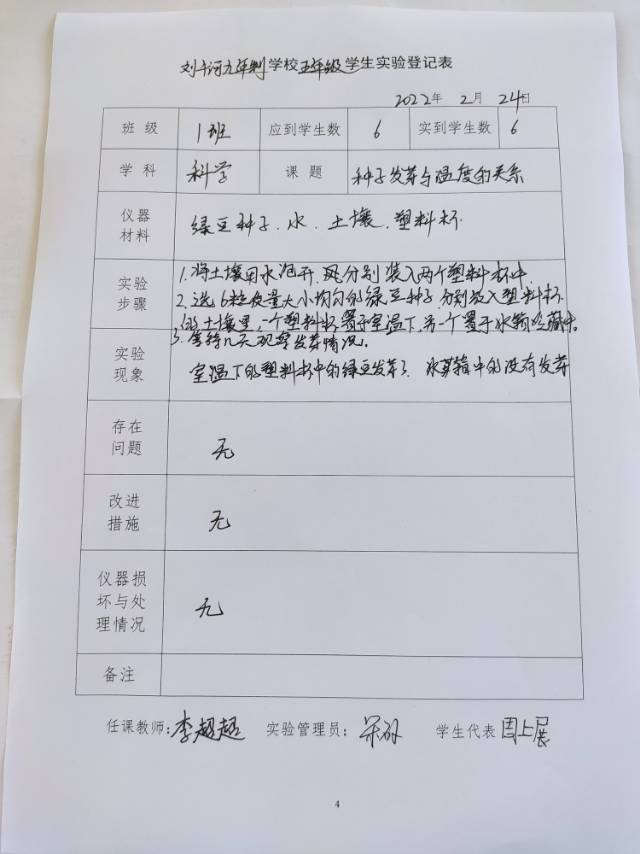 刘河九年制学校五年级学生实验登记表
2022年 2月 24日
班级 1班 应到学生数 6 实到学生数 6
学科 科学 课题 种子发芽与温度的关系
仪器材料 绿豆种子、水、土壤、塑料杯
实验步骤 1.将土壤用水泡开,分别装入两个塑料杯中.
2.选6粒质量大小均匀的绿豆种子,分别放入塑料杯
的土壤里,一个塑料杯置于室温下,另一个置于冰箱冷藏中.
3.等待几天观察发芽情况。
实验现象 室温下的塑料杯中的绿豆发芽了. 冰箱中的没有发芽
存在问题 无
改进措施 无
仪器损坏与处理情况 无
备注
任课教师:李超超 实验管理员: 学生代表 周上展
4